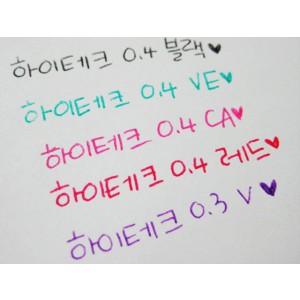 하이테크 0.4 블랙♥
하이테크 0.4 VE♥
하이테크 0.4 CA♥
하이테크 0.4 레드♥
하이테크 0.3 V♥